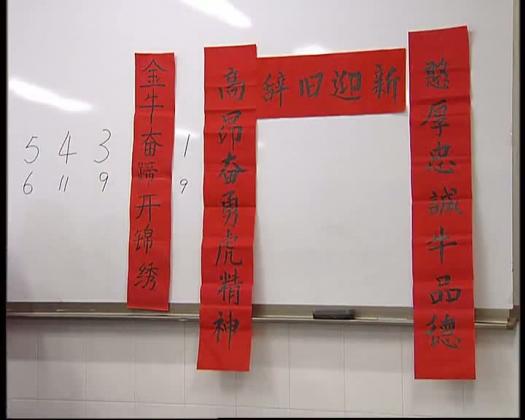 憨厚忠誠牛品德
高昂奋勇虎精神
辞旧迎新
金牛奋蹄开锦绣
5 4 3 1
6 11 9 9